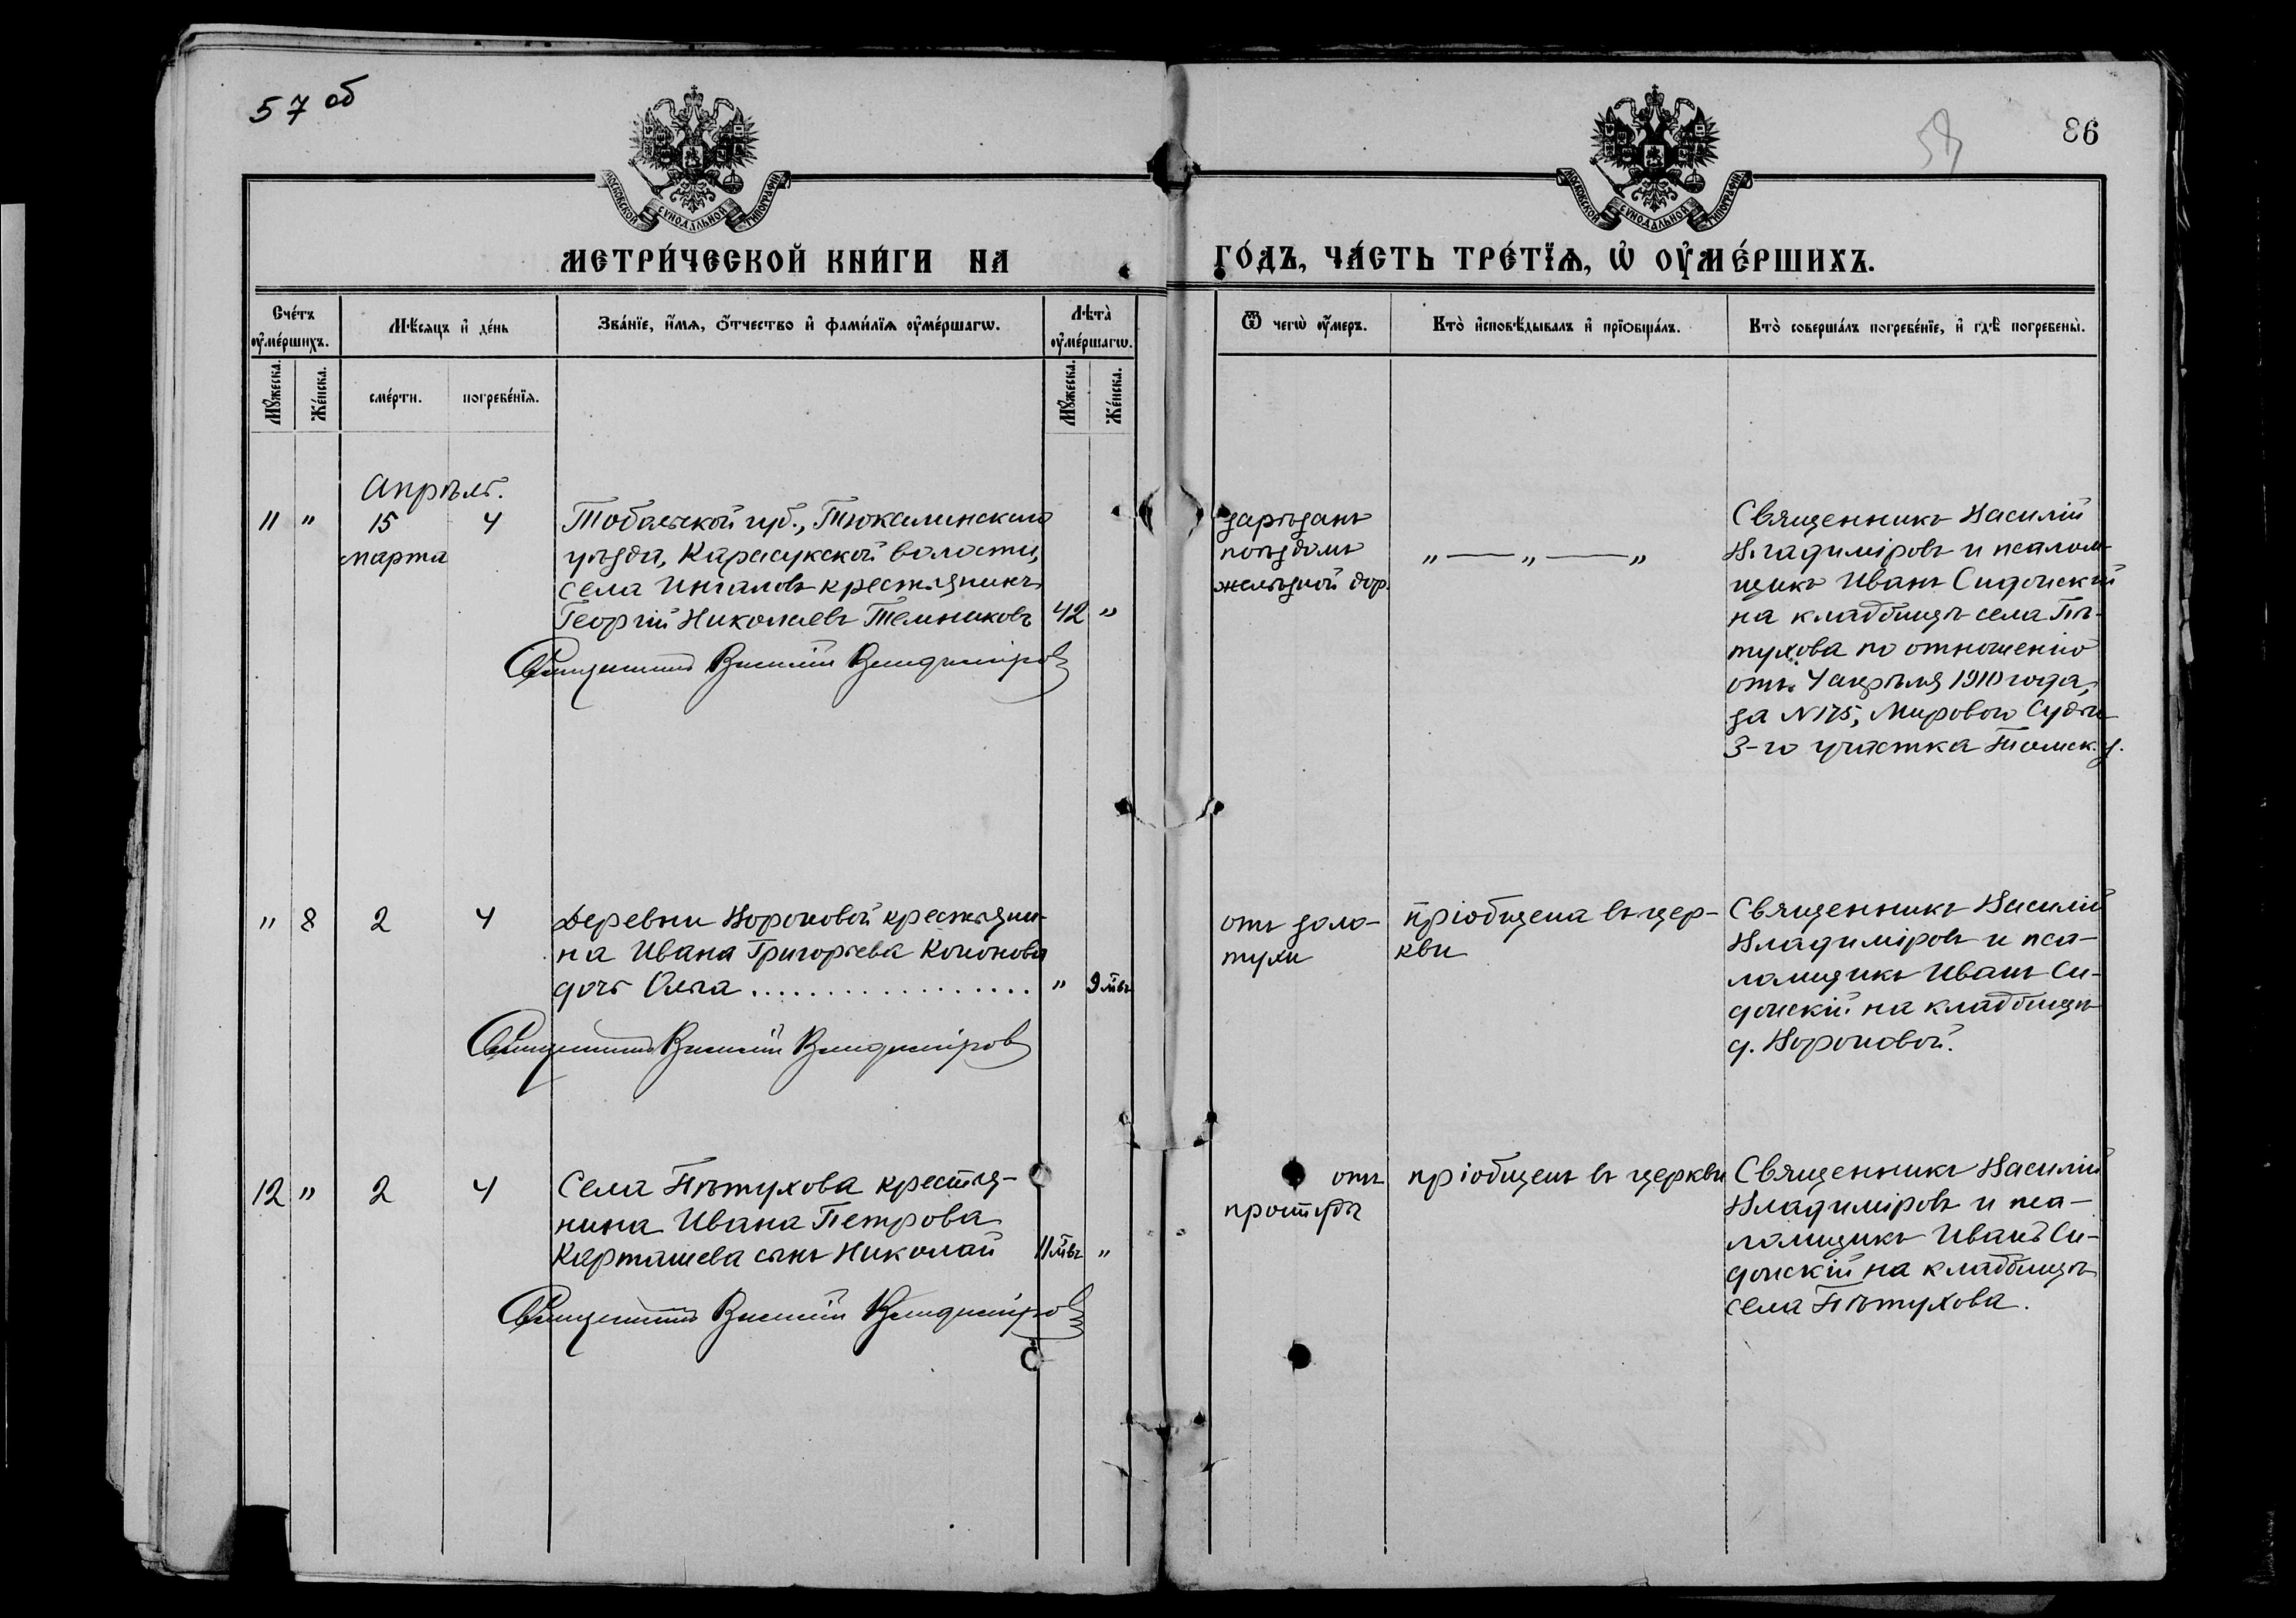 57 об
58
86
МОСКОВСКОЙ СУНОДАЛЬНОЙ ТИПОГРАФІИ
МОСКОВСКОЙ СУНОДАЛЬНОЙ ТИПОГРАФІИ
МЕТРИ́ЧЕСКОЙ КНИ́ГИ НА
ГО́ДЪ, ЧА́СТЬ ТРЕ́ТЇѦ, Ѡ҆ ОУ҆МЕ́РШИХЪ.
Сче́тъ оу҆ме́ршихъ.
Мѣ́сѧцъ и҆ де́нь
Зва́нїе, и҆́мѧ, ѻ҆́тчество и҆ фами́лїѧ оу҆ме́ршагѡ.
Лѣта̀ оу҆ме́ршагѡ.
Ѿ чегѡ̀ оу҆́меръ.
Кто̀ и҆сповѣ́дывалъ и҆ прїѡбща́лъ.
Кто̀ соверша́лъ погребе́нїе, и҆ гдѣ̀ погребены̀.
Мꙋ́жеска.
Же́нска.
сме́рти.
погребе́нїѧ.
Мꙋ́жеска.
Же́нска.
Апрѣль.
11 " 15 4
марта
Тобольской губ., Тюкалинскаго
уѣзда, Карасукской волости,
села Ингаловъ крестьянинъ
Георгій Николаевъ Темниковъ 42 "
Священникъ Василій Владиміровъ
зарѣзанъ
поѣздомъ
желѣзной дор.
" — " — "
Священникъ Василій
Владиміровъ и псалом-
щикъ Иванъ Сидонскій
на кладбищѣ села Пѣ-
тухова по отношенію
отъ 4 апрѣля 1910 года,
за N 175, Мирового Судьи
3-го участка Томск. у.
" 8 2 4
Деревни Вороновой крестьяни-
на Ивана Григорьева Кононова
дочь Ольга . . . . . . . . . . . . . . . . . " 9 м҃въ
Священникъ Василій Владиміровъ
отъ золо-
тухи
пріобщена въ цер-
кви
Священникъ Василій
Владиміровъ и пса-
ломщикъ Иванъ Си-
донскій на кладбищѣ
д. Вороновой.
12 " 2 4
Села Пѣтухова крестья-
нина Ивана Петрова
Карташева сынъ Николай 11 м҃въ "
Священникъ Василій Владиміровъ
отъ
простуды
пріобщенъ въ церкви
Священникъ Василій
Владиміровъ и пса-
ломщикъ Иванъ Си-
донскій на кладбищѣ
села Пѣтухова.